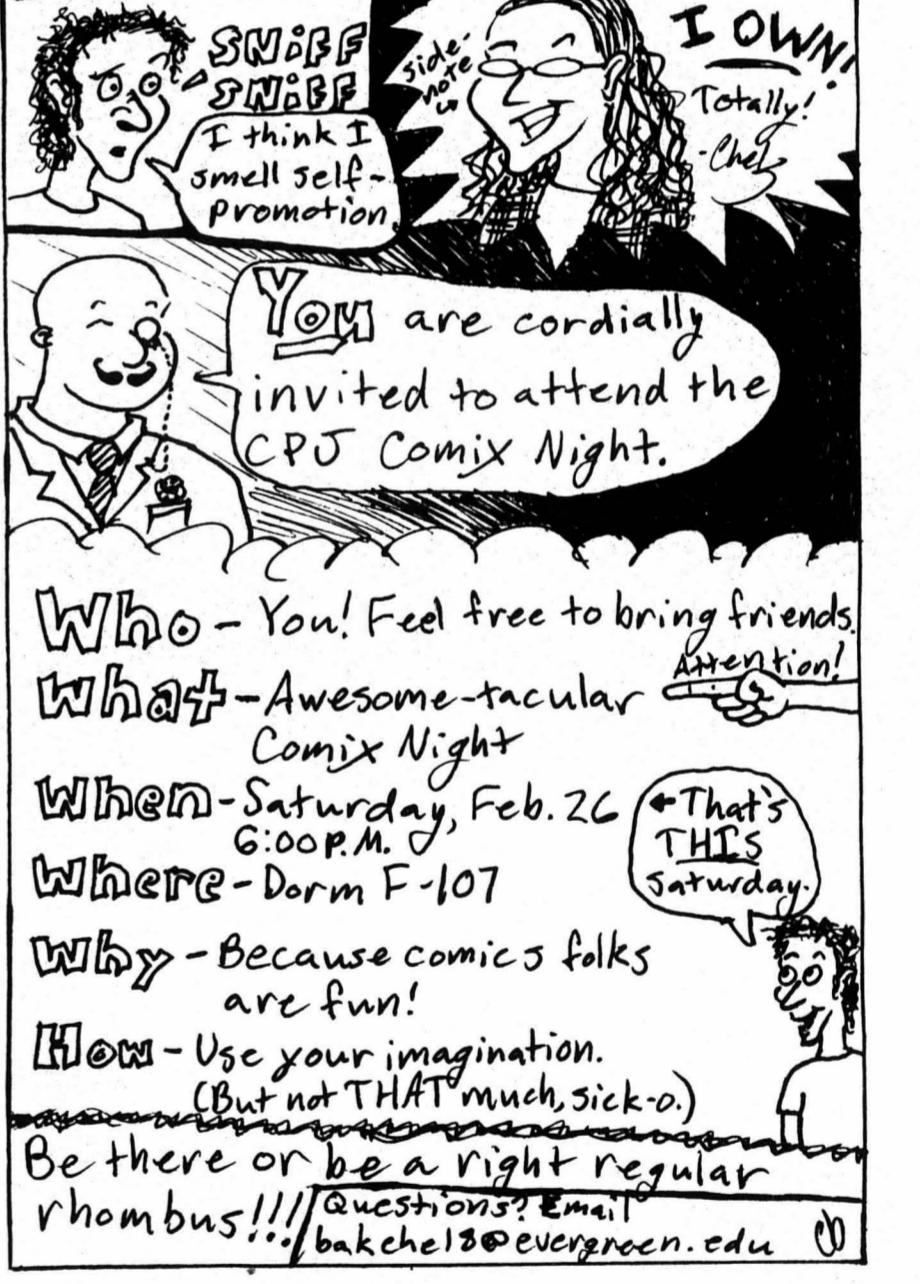 SNIFF
SNIFF
I think I
smell self-
promotion
side-
note
I OWN!
Totally!
-Chel
You are cordially
invited to attend the
CPJ Comix Night.
Who - You! Feel free to bring friends.
Attention!
What - Awesome-tacular
Comix Night
When - Saturday, Feb. 26
6:00 P.M.
That's
THIS
Saturday.
Where - Dorm F-107
Why - Because comics folks
are fun!
How - Use your imagination.
(But not THAT much, sick-o.)
Be there or be a right regular
rhombus!!!
Questions? Email
bakche18@evergreen.edu